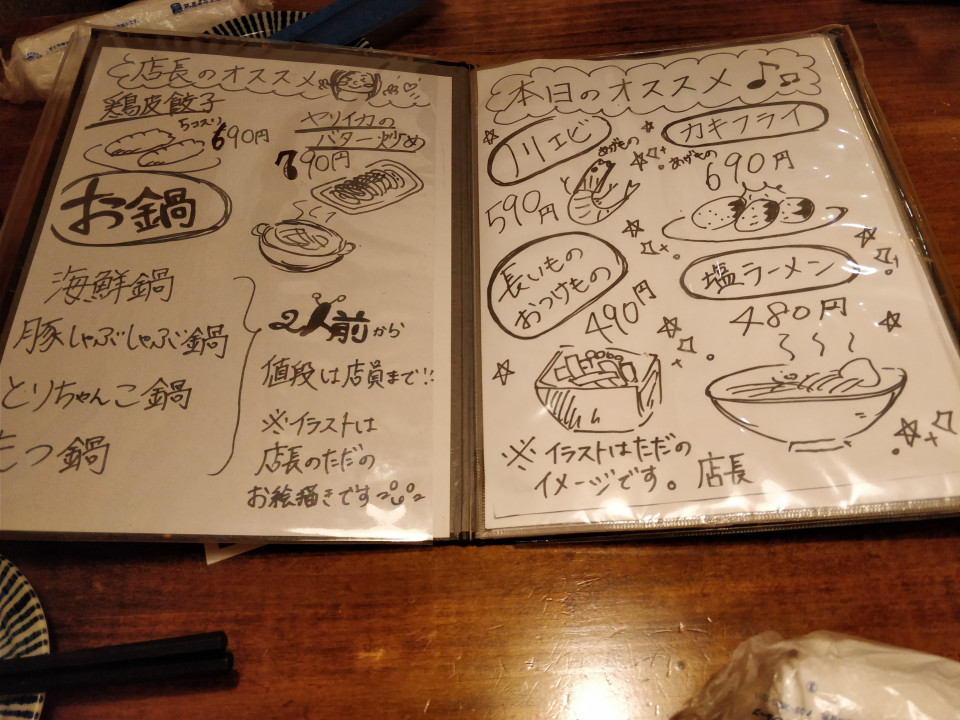 店長のオススメ
鶏皮餃子
5コスリ
690円
ヤリイカの
バター炒め
790円
お鍋
海鮮鍋
豚しゃぶしゃぶ鍋
とりちゃんこ鍋
もつ鍋
2人前から
値段は店員まで!!
※イラストは
店長のただの
お絵描きです
本日のオススメ♪♫
川エビ
あげもの
590円
カキフライ
あげもの
690円
長いもの
おつけもの
490円
塩ラーメン
480円
※イラストはただの
イメージです。店長